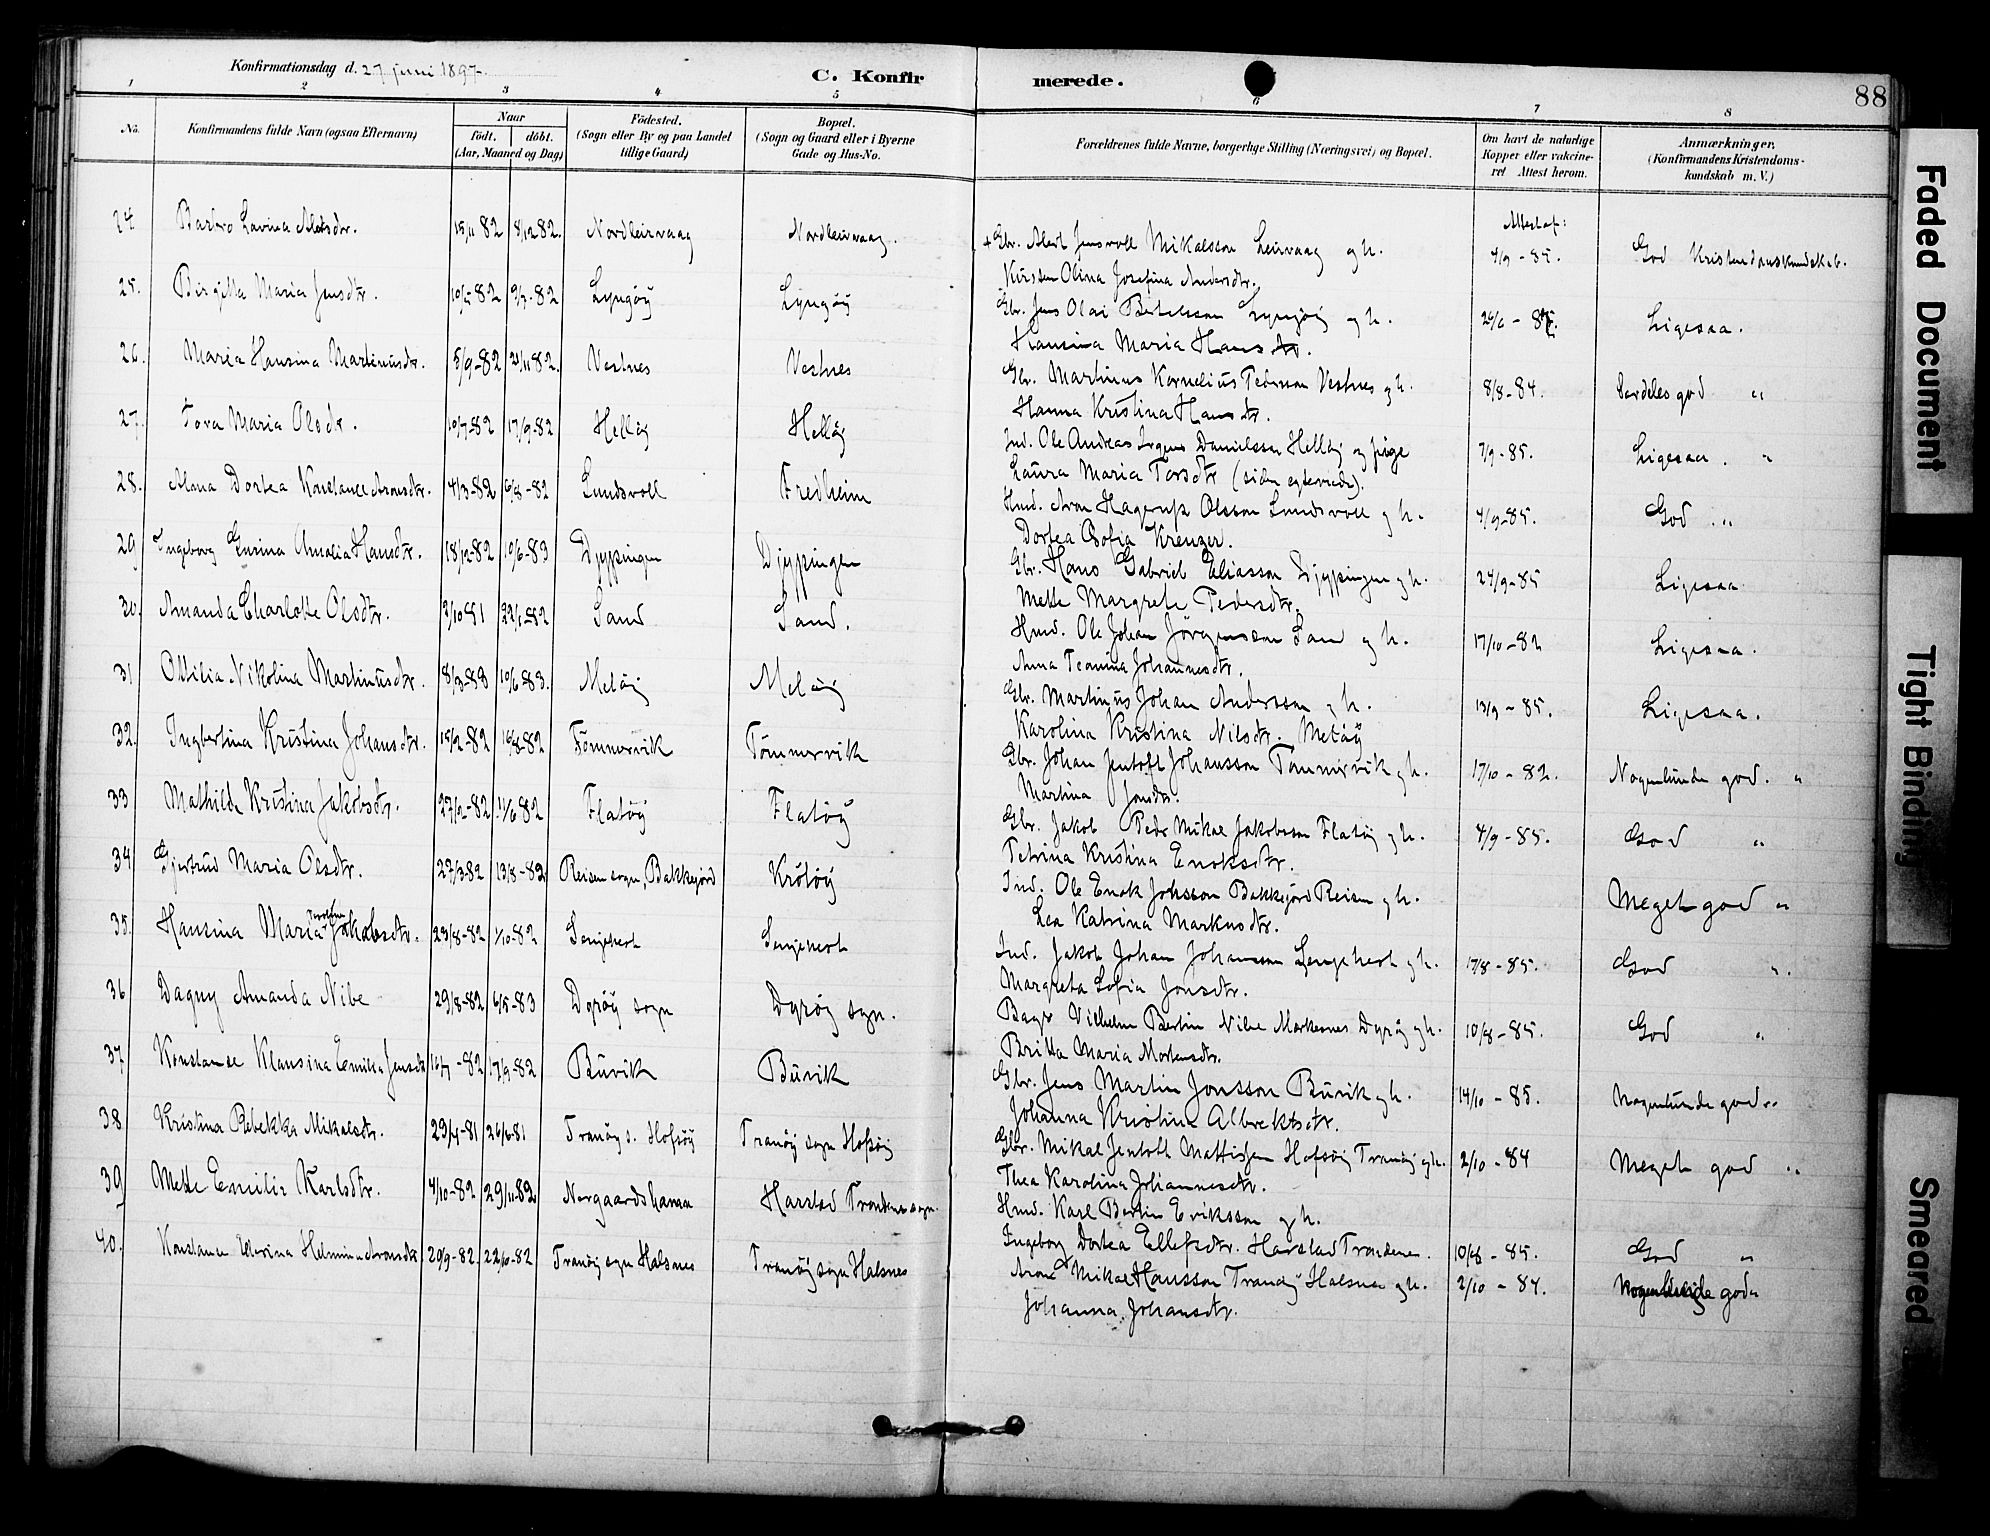 Konfirmationsdag d. 27 juni 1897.
C. Konfir merede.
88
1 2 3 4 5 6 7 8
No. Konfirmandens fulde Navn (ogsaa Efternavn) Naar födt. döbt. (Aar, Maaned og Dag) Födested. (Sogn eller By og paa Landet tillige Gaard) Bopæl. (Sogn og Gaard eller i Byerne Gade og Hus-No. Forældrenes fulde Navne, borgerlige Stilling (Næringsvei) og Bopæl. Om havt de naturlige Kopper eller vakcineret Attest herom. Anmærkninger. (Konfirmandens Kristendomskundskab m. V.)
24 Barbro Lavina 15/11 82 8/12 82. Nordleirvaag Nordleirvaag. + Gbr. Jensvoll Mikalsson Leirvaag g h. Attest af: 4/9 - 85. God Kristendomskundskab.
Kirsten Olina Josefina Andersdtr.
25. Birgitta Maria Jensdtr. 10/5-82 9/7-82 Lyngöy Lyngöy Gbr. Jens Olai Bertelsson Lyngöy g h. 26/6 - Ligesaa.
Hansina Maria Hansdtr.
26. Maria Hansina Martinusdtr. 5/9-82 21/11 82. Vestnes Vestnes Gbr. Martinus Kornelius Pedersson Vestnes g h. 8/8-84. Særdeles god "
Hanna Kristina Hansdtr.
27. Tora Maria Olsdtr. 10/7-82 17/9-82 Hellöy Hellöy Ind. Ole Andreas Irgens Danielsson Hellöy og pige 7/9-85. Ligesaa. "
Laura Maria Torsdtr (siden egteviede).
28. Alma Dortea Konstance Aronsdtr. 4/3-82 6/8-82 Lundsvoll Fredheim Hmd. Aron Hagerup Olsson Lundsvoll g h. 4/9-85. God "
Dortea Sofia Kreuzer.
29 Ingeborg Gusina Amalia Hansdtr. 18/12-82 10/6-83 Djyppingen Djyppingen Gbr. Hans Gabriel Eliasson Djyppingen g h. 24/9-85 Ligesaa
Mette Margrete Pedersdtr.
30. Amanda Charlotte Olsdtr. 2/10 81 22/1-82 Sand Sand. Hmd. Ole Johan Jörgensson Sand g h. 17/10-82 Ligesaa.
Anna Johannesdtr.
31 Ottilia Nikolina Martinusdtr. 8/3-83 10/6-83. Melöy Melöy Gbr. Martinus Johan Andersson g h. 13/9 - 85. Ligesaa.
Karolina Kristina Nilsdtr. Melöy
32. Ingbertina Kristina Johansdtr. 15/2-82 16/8-82 Tömmervik Tömmervik Gbr. Johan Jentoft Johansson Tömmervik g h. 17/10 - 82. Nogenlunde god. "
Martina Jonsdtr.
33 Mathilde Kristina Jakobsdtr. 27/2-82 11/6 82 Flatöy Flatöy Gbr. Jakob Peder Mikal Jakobsson Flatöy g h. 4/9-85. God "
Petrina Kristina Enoksdtr.
34 Gjertrud Maria Olsdtr. 27/3 82 13/8-82 Reisen sogn, Bakkejord Krötöy Ind. Ole Enok Johsson Bakkejord Reisen g h. Meget god "
Lea Katrina Markusdtr.
35. Hansina Maria Jakobsdtr. 23/8-82 1/10-82 Senjehest Senjehest Ind. Jakob Johan Johansson Senjehest g h. 17/8-85. God "
Margreta Sofia Jonsdtr.
36 Dagny Amanda Nibe 29/8-82 6/5-83 Dyröy sogn Dyröy sogn. Vilhelm Bertin Nibe Dyröy g h. 10/8-85. God "
Britta Maria Mortensdtr.
37 Konstanse Klausina Emilia Jensdtr 16/7 - 82 17/9-82 Burik Burik Gbr. Jens Martin Jonsson Burik g h. 14/10 - 85. Nogenlunde god "
Johanna Kristina Albrektsdtr.
38 Kristina Rebekka Mikalsdtr. 29/4-81 26/6 81 Tranöy s. Hofsöy Tranöy sogn Hofsöy Gbr. Mikal Jentoft Mattissen Hofsöy Tranöy g h. 2/10 - 84 Meget god "
Thea Karolina Johannesdtr.
39 Mette Emilie Karlsdtr. 4/10-82 29/11-82 Norgaardshavn Harstad Trondenes sogn. Hmd. Karl Bertin Eriksson g h.
Ingeborg Dortea Ellefsdtr. Harstad Trondenes. 10/8 - 85. God "
40. Konstance Helmine Aronsdtr. 20/9-82. 22/10-82 Tranöy sogn Halsnes Tranöy sogn Halsnes Aron Mikal Hansson Tranöy Halsnes g h. 2/10 - 84. Nogenlunde god "
Johanna Johansdtr.
Faded Document
Tight Binding
Smeared